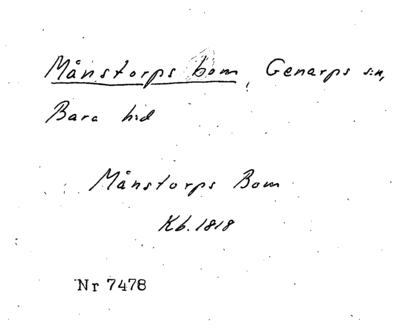 Månstorps bom, Genarps s:n,
Bara hd
Månstorps Bom
Kb. 1818
Nr 7478